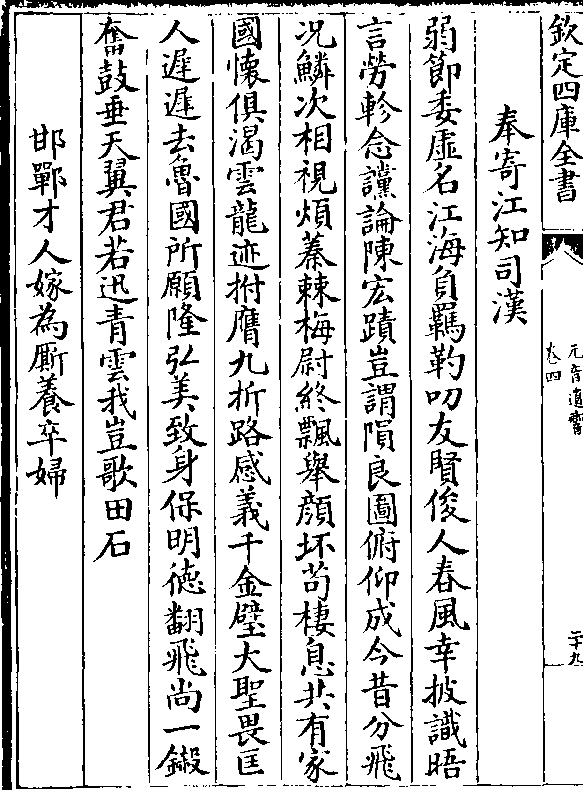 欽定四庫全書
元音遺響
卷四
二十九
奉寄江知司漢
弱節委虛名江海負羈靮叨友賢俊人春風幸披識晤
言勞軫念讜論陳宏蹟豈謂隕良圖俯仰成今昔分飛
况鱗次相視煩蓁棘梅尉終飄舉顔坏苟棲息共有家
國懷俱渴雲龍迹拊膺九折路感義千金璧大聖畏匡
人遲遲去魯國所願隆弘美致身保明德翻飛尚一鎩
奮鼓垂天翼君若迅青雲我豈歌田石
邯鄲才人嫁為厮養卒婦